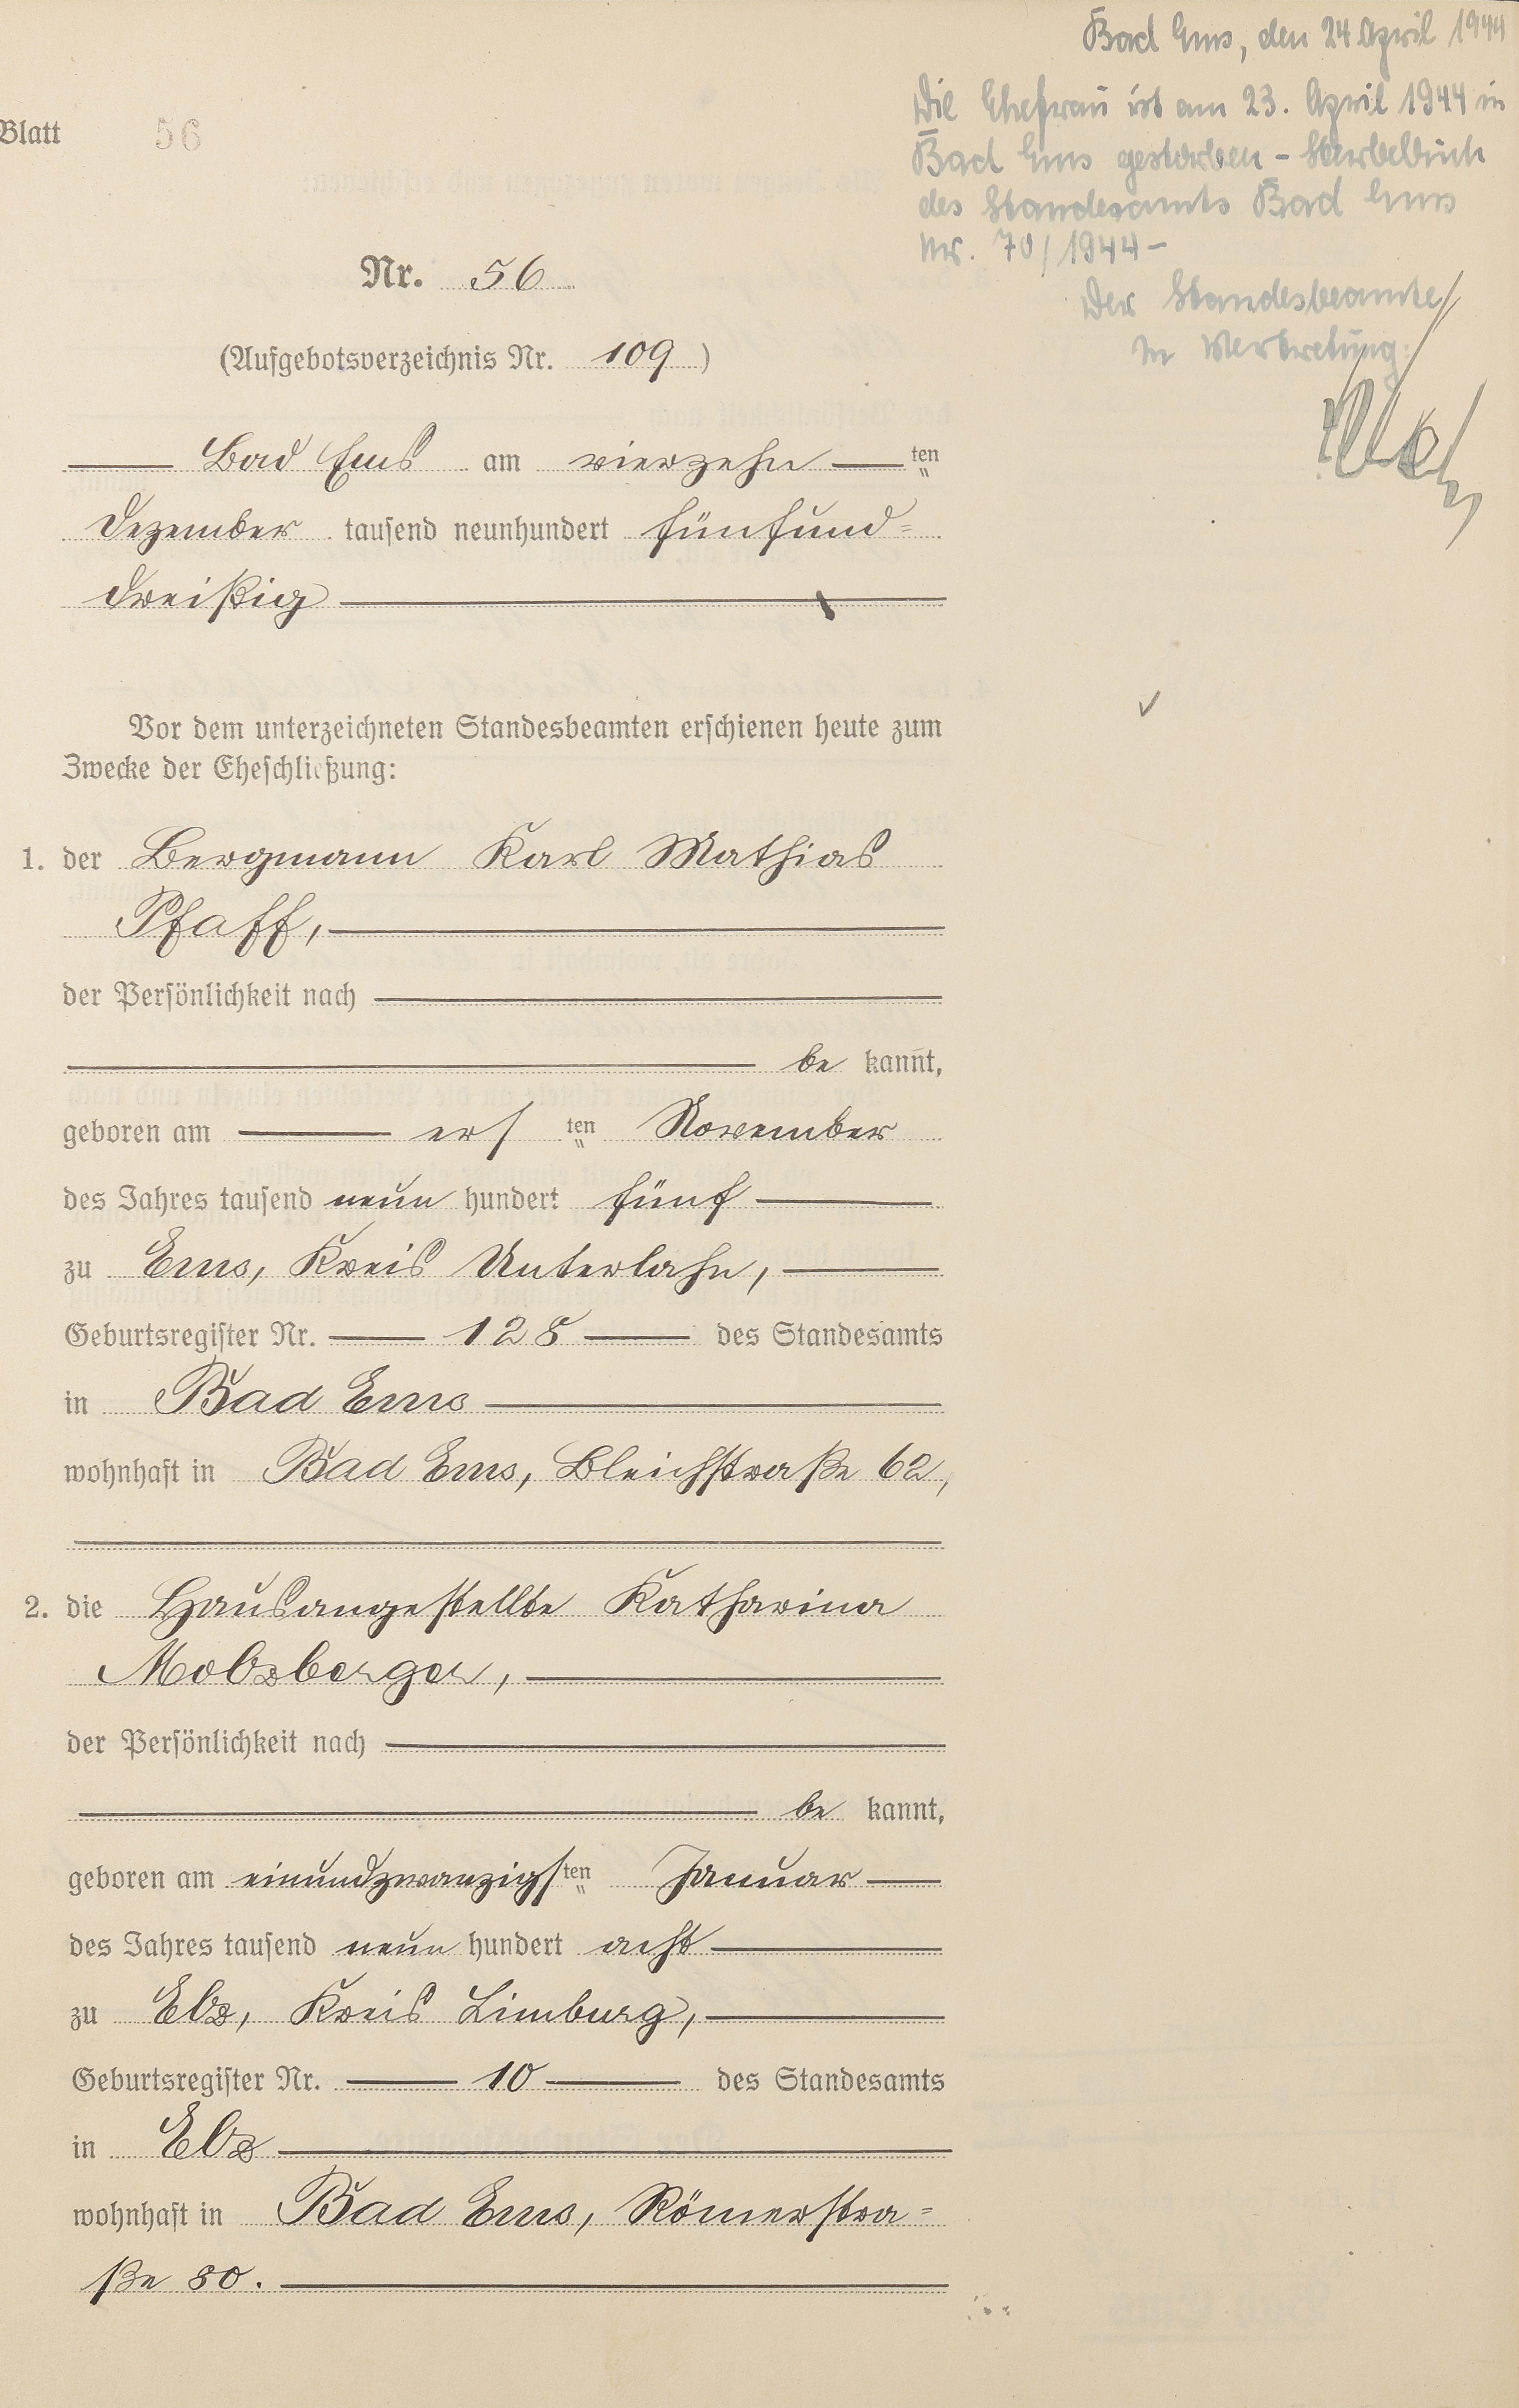 Bad Ems, den 24 April 1944
Die Ehefrau ist am 23. April 1944 in
Bad Ems gestorben - Sterbebuch
des Standesamts Bad Ems
Nr. 70/1944 -
Der Standesbeamte
In Vertretung:
Blatt 56
Nr. 56
(Aufgebotsverzeichnis Nr. 109)
Bad Ems am vierzehnten
Dezember tausend neunhundert fünfund=
dreißig
Vor dem unterzeichneten Standesbeamten erschienen heute zum
Zwecke der Eheschließung:
1. der Bergmann Karl Mathias
Pfaff,
der Persönlichkeit nach
be kannt,
geboren am ersten November
des Jahres tausend neun hundert fünf
zu Ems, Kreis Unterlahn,
Geburtsregister Nr. 128 des Standesamts
in Bad Ems
wohnhaft in Bad Ems, Bleichstraße 62,
2. die Hausangestellte Katharina
der Persönlichkeit nach
be kannt,
geboren am einundzwanzigsten Januar
des Jahres tausend neun hundert acht
zu Elz, Kreis Limburg,
Geburtsregister Nr. 10 des Standesamts
in Elz
wohnhaft in Bad Ems, Römerstra=
ße 80.